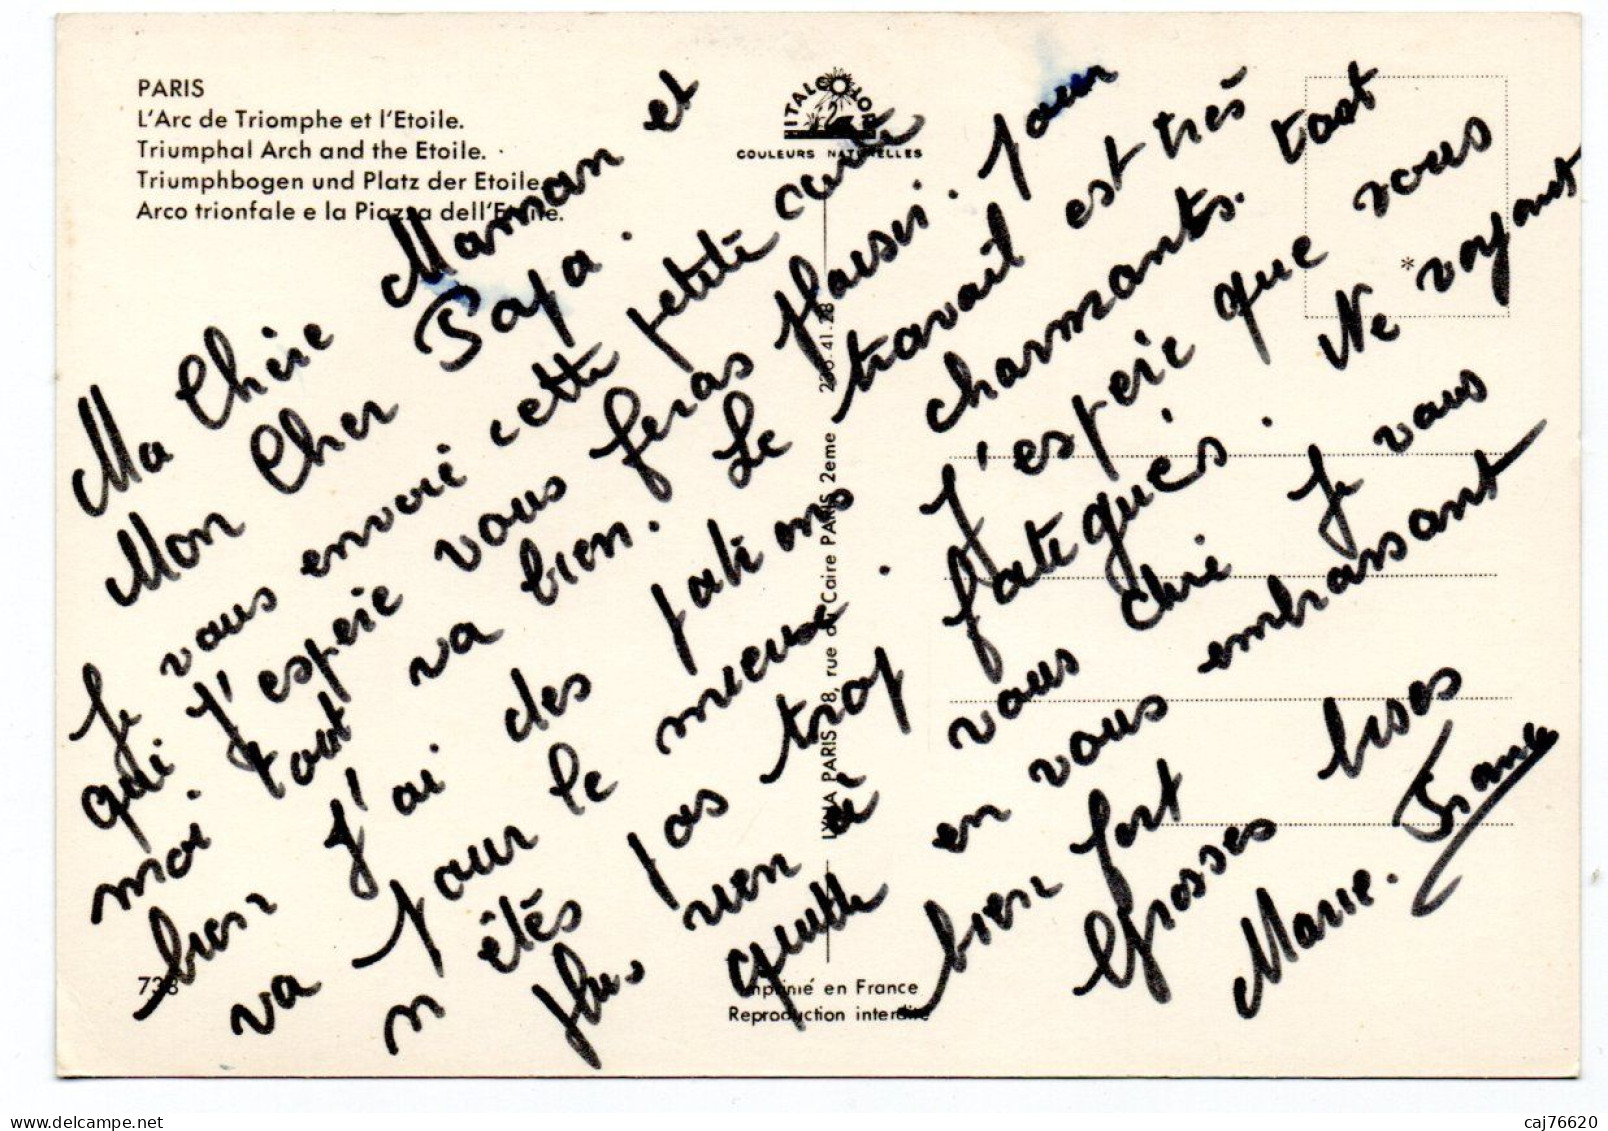 PARIS
L'Arc de Triomphe et l'Etoile.
Triumphal Arch and the Etoile.
Triumphbogen und Platz der Etoile.
Arco trionfale e la Piazza dell'Etoile.
ITALCOLOR
COULEURS NATURELLES
Ma Chère Maman et
Mon Cher Papa.
Je vous envoie cette petite carte
qui j'espere vous feras plaisir. pour
moi tout va bien. Le travail est très
bien j'ai des patrons charmants. tout
va pour le mieux. J'espere que vous
n'étés pas trop fategués. Ne voyant
plus rien à vous dire je vous
quitte en vous embrassant
bien fort
Grosses bises
Marie. France
LYNA PARIS 8, rue du Caire PARIS 2eme 236.41.28
*
738
Imprimé en France
Reproduction interdite
caj76620